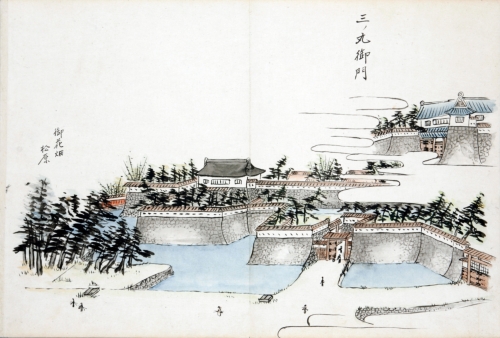 三ノ丸御門
御花畑
松原